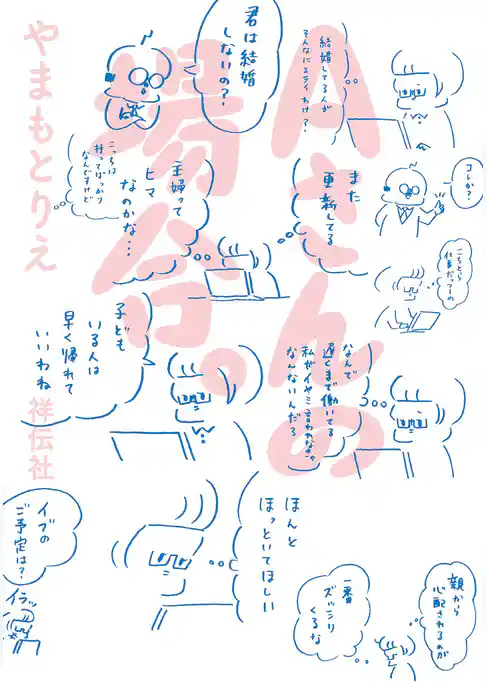 Aさんの
場合。
やまもとりえ
祥伝社
結婚してる人が
そんなにエライわけ？
君は結婚
しないの？
コレか？
こちとら
仕事だっつーの
また
更新してる
主婦って
ヒマ
なのかな…
こっちは
待ってばっかり
なんですけど
なんで
遅くまで働いてる
私がイヤミ言われなきゃ
なんないんだろ
子ども
いる人は
早く帰れて
いいわね
ほんと
ほっといてほしい
親から
心配されるのが
一番
ズッシリ
くるな
イブの
ご予定は？
イラッ